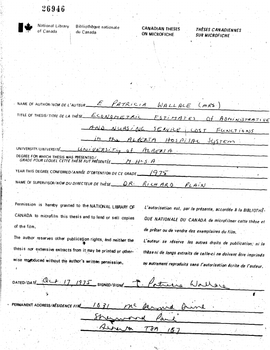 26946
National Library of Canada
Bibliothèque nationale du Canada
CANADIAN THESES ON MICROFICHE
THÈSES CANADIENNES SUR MICROFICHE
NAME OF AUTHOR/NOM DE L'AUTEUR E. PATRICIA WALLACE (MRS)
TITLE OF THESIS/TITRE DE LA THÈSE ECONOMETRIC ESTIMATES OF ADMINISTRATIVE
AND NURSING SERVICE COST FUNCTIONS
IN THE ALBERTA HOSPITAL SYSTEM
UNIVERSITY/UNIVERSITÉ UNIVERSITY OF ALBERTA
DEGREE FOR WHICH THESIS WAS PRESENTED/
GRADE POUR LEQUEL CETTE THÈSE FUT PRÉSENTÉE M.H.S.A
YEAR THIS DEGREE CONFERRED/ANNÉE D'OBTENTION DE CE GRADE 1975
NAME OF SUPERVISOR/NOM DU DIRECTEUR DE THÈSE DR RICHARD PLAIN
Permission is hereby granted to the NATIONAL LIBRARY OF
CANADA to microfilm this thesis and to lend or sell copies
of the film.
The author reserves other publication rights, and neither the
thesis nor extensive extracts from it may be printed or other-
wise reproduced without the author's written permission.
L'autorisation est, par la présente, accordée à la BIBLIOTHÈ-
QUE NATIONALE DU CANADA de microfilmer cette thèse et
de prêter ou de vendre des exemplaires du film.
L'auteur se réserve les autres droits de publication; ni la
thèse ni de longs extraits de celle-ci ne doivent être imprimés
ou autrement reproduits sans l'autorisation écrite de l'auteur.
DATED/DATÉ Oct 17, 1975 SIGNED/SIGNÉ Patricia Wallace
PERMANENT ADDRESS/RÉSIDENCE FIXÉ 1031
Sherwood Park
Alberta